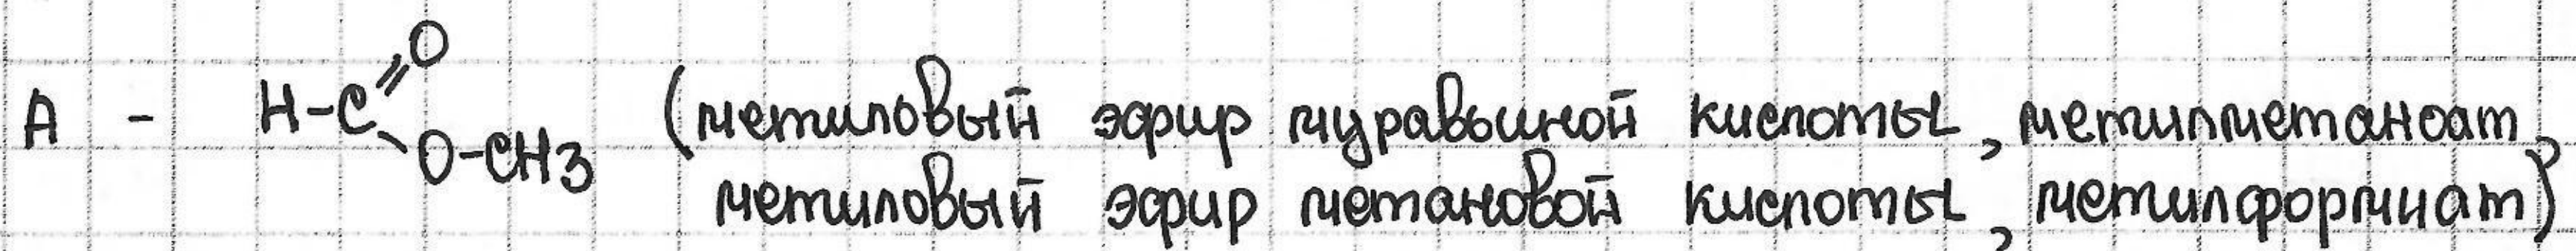 A - H-C=O O-CH3 (метиловый эфир муравьиной кислоты, метилметаноат,
метиловый эфир метановой кислоты, метилформиат)